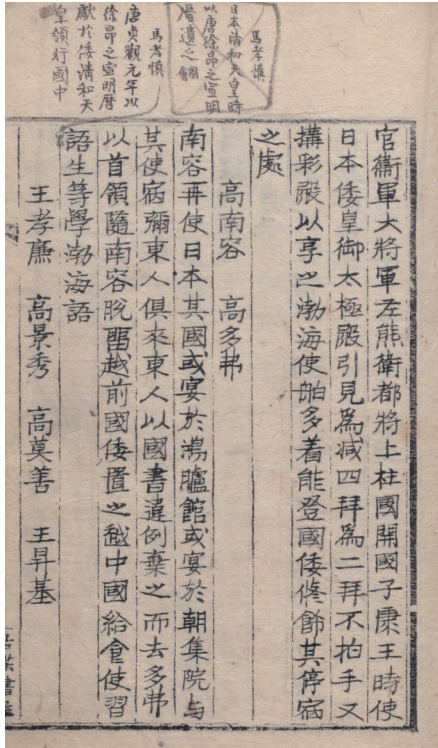 馬孝慎
日本清和天皇時
以唐徐昂之宣明
曆遺之
馬孝慎
唐貞觀元年以
徐昂之宣明曆
獻於倭清和天
皇頒行國中
官衛軍大將軍左熊衛都將上柱國開國子康王時使
日本倭皇御太極殿引見爲减四拜爲二拜不拍手又
搆彩殿以享之渤海使舶多着能登國倭修飾其停宿
之處
高南容 高多弗
南容再使日本其國或宴於鴻臚館或宴於朝集院与
其使宿彌東人俱來東人以國書違例棄之而去多弗
以首領隨南容脫留越前國倭置之越中國給食使習
語生等學渤海語
王孝廉 高景秀 高莫善 王昇基